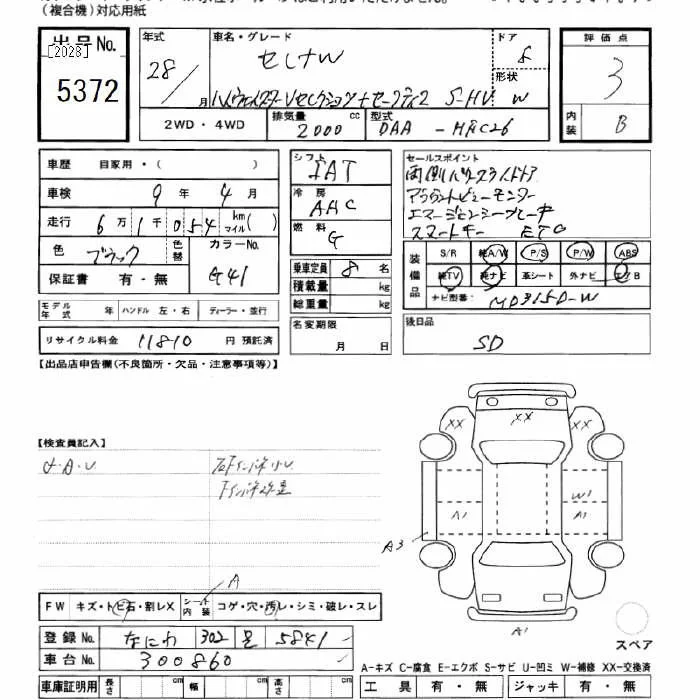 (複合機)対応用紙
出品No.
[2028]
5372
年式
28/月
車名・グレード
セレナW
ハイウェイスターVセレクション+セーフティ2 S-HV
ドア
8
形状
W
評価点
3
内装
B
2WD・4WD
排気量 2000 cc
型式 DAA-HFC26
車歴 自家用・( )
車検 9年4月
走行 6万1千054 km マイル( )
色 ブラック
色替
カラーNo. G41
保証書 有・無
シフト
IAT
冷房
AAC
燃料
G
乗車定員 8名
積載量 kg
総重量 kg
セールスポイント
両側パワースライドドア
アラウンドビューモニター
エマージェンシーブレーキ
スマートキー ETC
装備品
S/R 純A/W P/S P/W ABS
純TV 純ナビ 革シート 外ナビ エアB
ナビ型番: MD315D-W
モデル年式 年 ハンドル 左・右 ディーラー・並行
リサイクル料金 11810 円 預託済
名変期限
月 日
後日品
SD
【出品店申告欄(不良箇所・欠品・注意事項等)】
【検査員記入】
XX
XX
XX
W1
A1
A1
A3
A1
A
FW キズ・トビ石・割レX シート内装 コゲ・穴・汚レ・シミ・破レ・スレ
登録No. なにわ 302 is 5841
車台No. 300860
スペア
A-キズ C-腐食 E-エクボ S-サビ U-凹ミ W-補修 XX-交換済
車庫証明用 長さ cm 幅 cm 高さ cm
工具 有・無 ジャッキ 有・無